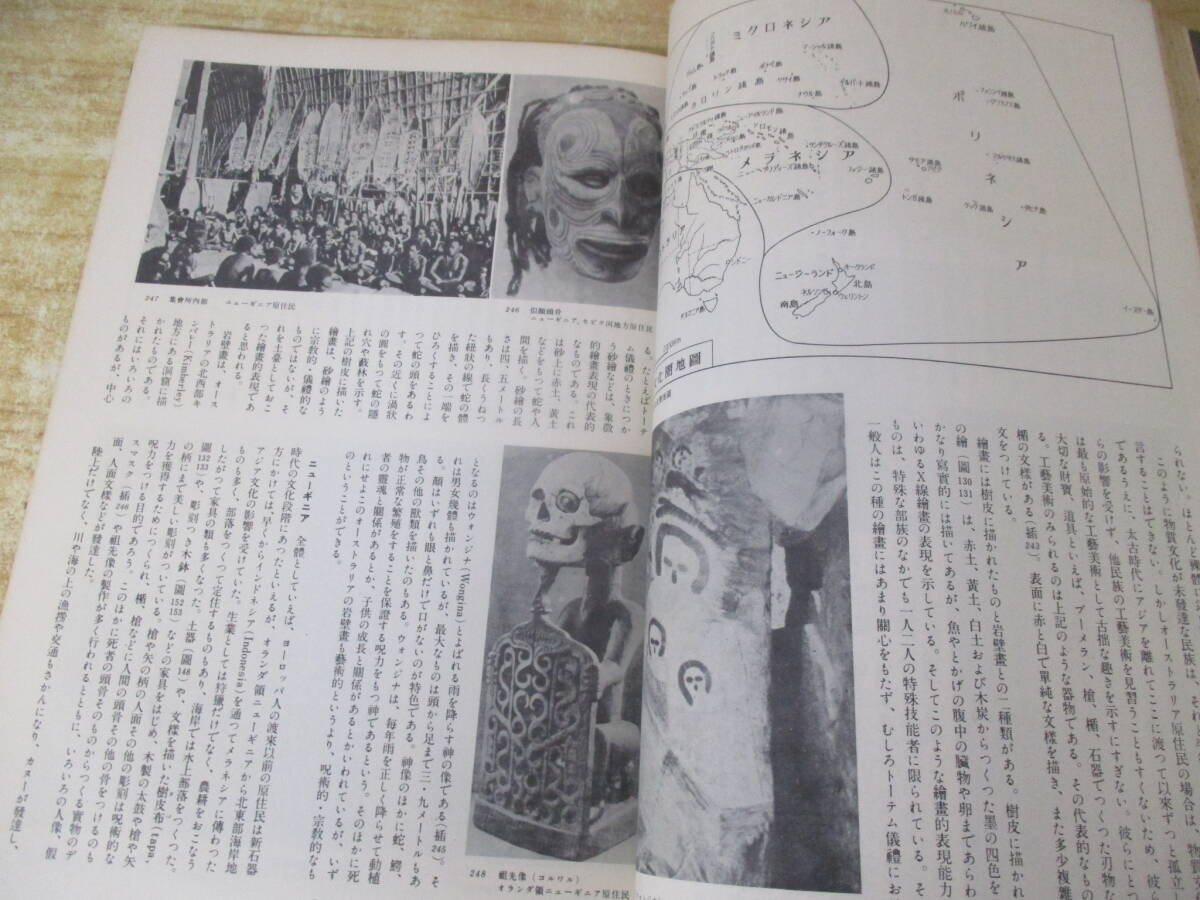 ミクロネシア
マーシャル諸島
ギルバート諸島
ナウル島
カロリン諸島
ハワイ諸島
ポリネシア
メラネシア
サモア諸島
トンガ諸島
フィジー諸島
クック諸島
ニューカルドニア島
ノーフォーク島
ニュージーランド
オークランド
北島
ウェリントン
南島
シドニー
タスマニア島
られない。ほとんど
このように物質文化が未發達な民族は、
言することはできない。しかしオーストラリア原住民の場合は、物質文
であるうえに、太古時代にアジアを離れてここに渡つて以來ずつと孤立し
らの影響を受けず、他民族の工藝美術を見習うこともすくないため、彼ら
は最も原始的な工藝美術として古拙な趣きを示すにすぎない。彼らにとつ
大切な財寶、道具といえば、ブーメラン、槍、楯、石器でつくつた刃物な
る。工藝美術のみられるのは上記のような器物である。その代表的なもの
楯の文様がある(插242)。表面に赤と白で單純な文様を描き、また多少複雜
文をつけている。
繪畫には樹皮に描かれたものと岩壁畫との二種類がある。樹皮に描かれ
の繪(圖130131)は、赤土、黄土、白土および木炭からつくつた墨の四色を
かなり寫實的には描いてあるが、魚やとかげの腹中の臟物や卵まであらわ
いわゆるX線繪畫の表現を示している。そしてこのような繪畫的表現能力
ものは、特殊な部族のなかでも一人二人の特殊技能者に限られている。そ
一般人はこの種の繪畫にはあまり關心をもたず、むしろトーテム儀禮にお
247 集會所內部 ニューギニア原住民
246 似顏頭骨
ニューギニア、セピク河地方原住民
る。たとえばトーテ
ム儀禮のときにつか
う砂繪などは、象徵
的繪畫表現の代表的
なものである。これ
は砂上に赤土、黄土
などをもつて蛇や人
間を描く。砂繪の長
さは四、五メートル
もあり、長くうねつ
た紐狀の線で蛇の體
を描き、その一端を
ひろくすることによ
つて蛇の頭をあらわ
す。その近くに渦狀
の圓をもつて蛇の隱
れ穴や藪林を示す。
上記の樹皮に描いた
繪畫は、砂繪のよう
に宗敎的・儀禮的な
ものではないが、そ
れを土臺としておこ
つた繪畫的表現であ
ると思われる。
岩壁畫は、オース
トラリアの北西部キ
ンバレー(Kimberley)
地方にある洞窟に描
かれたものである。
それにはいろいろの
ものがあるが、中心
となるのはウォンジナ(Wongina)とよばれる雨を降らす神の像である(插245)。そ
れは男女幾體も描かれているが、最大なものは頭から足まで三・九メートルもあ
る。顏はいずれも眼と鼻だけで口がないのが特色である。神像のほかに蛇、鰐、
鳥その他の獸類を描いたのもある。ウォンジナは、每年雨を正しく降らせて動植
物が正常な繁殖をすることを保證する呪力をもつ神であるという。そのほかに死
者の靈魂と關係があるとか、子供の成長と關係があるとかいわれているが、いず
れにせよこのオーストラリアの岩壁畫も藝術的というより、呪術的・宗敎的なも
のということができる。
ニューギニア 全體としていえば、ヨーロッパ人の渡來以前の原住民は新石器
時代の文化段階にあつたといえるが、オランダ領ニューギニアから北東部海岸地
方にかけては、早くからインドネシア(Indonesia)を通つてメラネシアに傳わつた
アジア文化の影響を受けていた。生業としては狩獵だけでなく、農耕をおこなう
ものも多く、部落をつくつて定住するものもあり、海岸では水上部落をつくつた。
したがつて家具の類も多くなつた。土器(圖146)や、文様を描いた樹皮布(tapa,
圖132133)や、彫刻つき木鉢(圖152153)などの家具をはじめ、木製の太鼓や槍や矢
の柄にまで美しい彫刻がついている。槍や矢の柄の人面その他の彫刻は呪術的な
力を獲得するためにつくられ、楯、槍などに人間の頭骨その他の骨をつけるのも
呪力をつける目的であろう。このほかに死者の頭骨そのものからつくる實物のデ
スマスク(插246)や祖先像の製作が多く行われるとともに、いろいろの人像、假
面、人面文様などが發達した。
陸上だけでなく、川や海の上の漁撈や交通もさかんになり、カヌーが發達し、
248 祖先像(コルワル)
オランダ領ニューギニア原住民